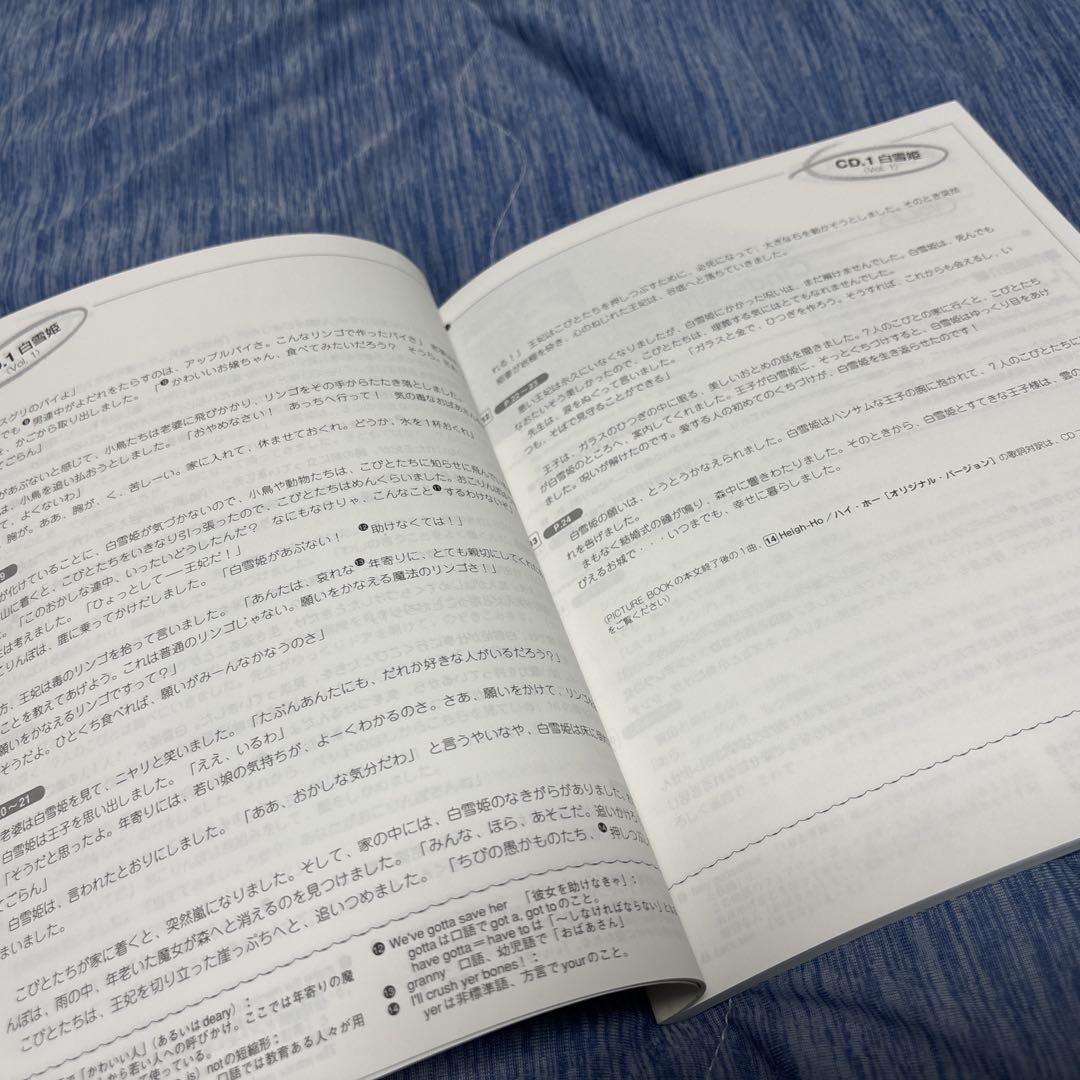 D.1 白雪姫
(Vol. 1)
スグリのパイよ」
でも❾男連中がよだれをたらすのは、アップルパイさ。こんなリンゴで作ったパイさ」
かごから取り出しました。「❿かわいいお嬢ちゃん、食べてみたいだろう？
てごらん」
があぶないと感じて、小鳥たちは老婆に飛びかかり、リンゴをその手からたたき落としました。
は、小鳥を追い払おうとしました。「おやめなさい！　あっちへ行って！　気の毒なおばあさん
て、よくないわ」
、胸が。ああ、胸が、く、苦しーい。家に入れて、休ませておくれ。どうか、水を1杯おくれ」
9
が化けていることに、白雪姫が気づかないので、小鳥や動物たちは、こびとたちに知らせに飛んで
山に着くと、こびとたちをいきなり引っ張ったので、こびとたちはめんくらいました。おこりんぼは
。「このおかしな連中、いったいどうしたんだ？　なにもなけりゃ、こんなこと⓫するわけないぞ」
は考えました。「ひょっとして——王妃だ！」
とりんぼは、鹿に乗ってかけだしました。「白雪姫があぶない！　⓬助けなくては！」
方、王妃は毒のリンゴを拾って言いました。「あんたは、哀れな⓭年寄りに、とても親切にしてくれ
ことを教えてあげよう。これは普通のリンゴじゃない。願いをかなえる魔法のリンゴさ！」
願いをかなえるリンゴですって？」
そうだよ。ひとくち食べれば、願いがみーんなかなうのさ」
0～21
老婆は白雪姫を見て、ニヤリと笑いました。「たぶんあんたにも、だれか好きな人がいるだろう？」
白雪姫は王子を思い出しました。「ええ、いるわ」
「そうだと思ったよ。年寄りには、若い娘の気持ちが、よーくわかるのさ。さあ、願いをかけて、リンゴ
てごらん」
白雪姫は、言われたとおりにしました。「ああ、おかしな気分だわ」と言うやいなや、白雪姫は床に
まいました。
こびとたちが家に着くと、突然嵐になりました。そして、家の中には、白雪姫のなきがらがありました。
んぼは、雨の中、年老いた魔女が森へと消えるのを見つけました。「みんな、ほら、あそこだ。追いかけろ
こびとたちは、王妃を切り立った崖っぷちへと、追いつめました。「ちびの愚かものたち、⓮押しつぶ
「かわいい人」(あるいはdeary)：
から若い人への呼びかけ。ここでは年寄りの魔
て使っている。
is) notの短縮形：
口語では教育ある人々が用
⓬ We've gotta save her　「彼女を助けなきゃ」：
gottaは口語でgot a, got toのこと。
have gotta＝have toは「～しなければならない」
⓭ granny　口語、幼児語で「おばあさん」
⓮ I'll crush yer bones！：
yerは非標準語、方言でyourのこと。
CD.1 白雪姫
(Vol. 1)
れる！」　王妃はこびとたちを押しつぶすために、必死になって、大きな石を動かそうとしました。そのとき突然
稲妻が岩棚を砕き、心のねじれた王妃は、谷底へと落ちていきました。
P.22～23
悪い王妃は永久にいなくなりましたが、白雪姫にかかった呪いは、まだ解けませんでした。白雪姫は、死んでも
なおたいそう美しかったので、こびとたちは、埋葬する気にはとてもなれませんでした。
先生は、涙をぬぐって言いました。「ガラスと金で、ひつぎを作ろう。そうすれば、これからも会えるし、い
つも、そばで見守ることができる」
王子は、ガラスのひつぎの中に眠る、美しいおとめの話を聞きました。7人のこびとの家に行くと、こびとたち
が白雪姫のところへ、案内してくれました。王子が白雪姫に、そっとくちづけすると、白雪姫はゆっくり目をあけ
ました。呪いが解けたのです。愛する人の初めてのくちづけが、白雪姫を生き返らせたのです！
P.24
白雪姫の願いは、とうとうかなえられました。白雪姫はハンサムな王子の腕に抱かれて、7人のこびとたちに
れを告げました。
まもなく結婚式の鐘が鳴り、森中に響きわたりました。そのときから、白雪姫とすてきな王子様は、雲の
びえるお城で・・・いつまでも、幸せに暮らしました。
(PICTURE BOOKの本文終了後の1曲、14 Heigh-Ho／ハイ・ホー［オリジナル・バージョン］の歌詞対訳は、CD
をご覧ください)